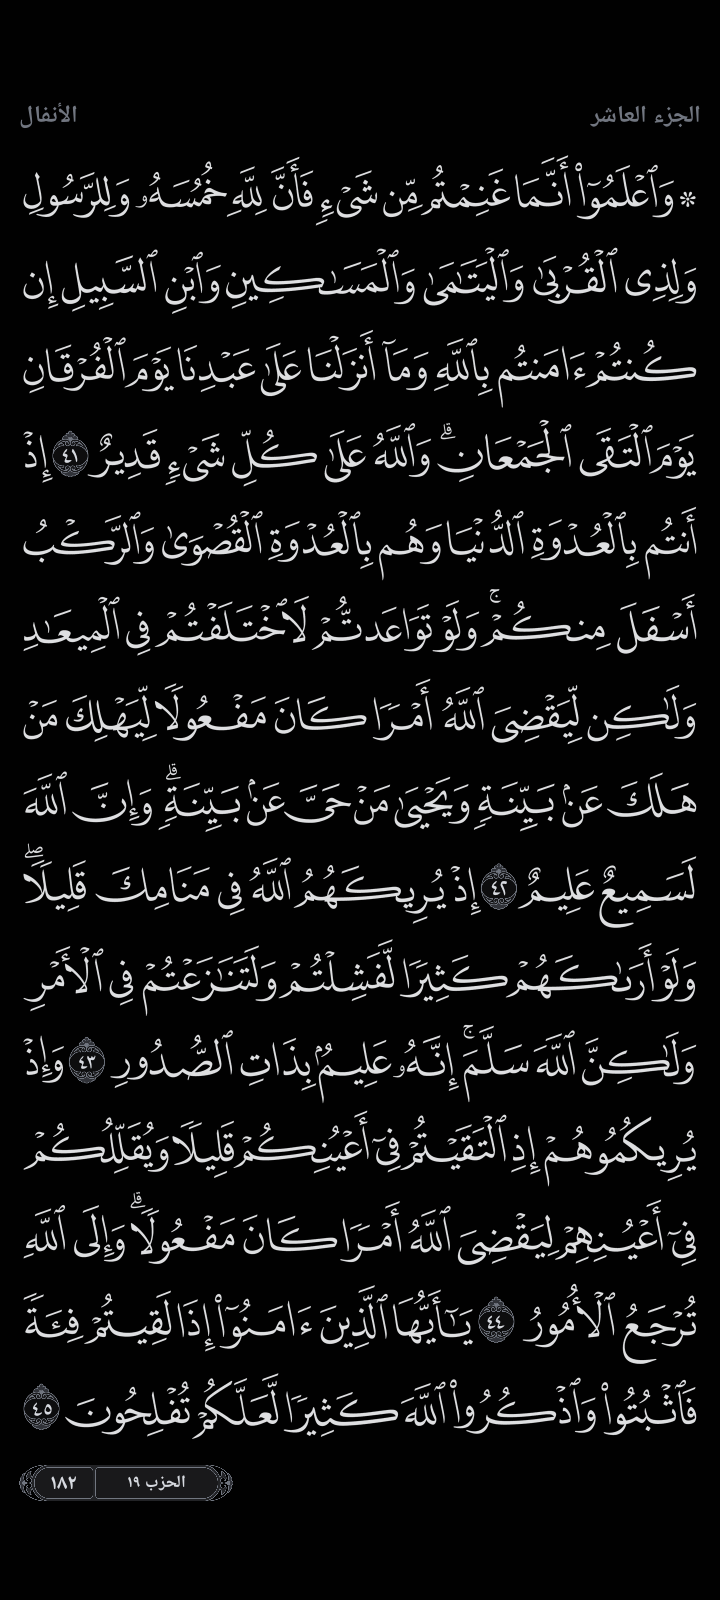 الجزء العاشر
الأنفال
۞ وَٱعۡلَمُوٓاْ أَنَّمَا غَنِمۡتُم مِّن شَيۡءٖ فَأَنَّ لِلَّهِ خُمُسَهُۥ وَلِلرَّسُولِ
وَلِذِي ٱلۡقُرۡبَىٰ وَٱلۡيَتَٰمَىٰ وَٱلۡمَسَٰكِينِ وَٱبۡنِ ٱلسَّبِيلِ إِن
كُنتُمۡ ءَامَنتُم بِٱللَّهِ وَمَآ أَنزَلۡنَا عَلَىٰ عَبۡدِنَا يَوۡمَ ٱلۡفُرۡقَانِ
يَوۡمَ ٱلۡتَقَى ٱلۡجَمۡعَانِۗ وَٱللَّهُ عَلَىٰ كُلِّ شَيۡءٖ قَدِيرٌ ٤١ إِذۡ
أَنتُم بِٱلۡعُدۡوَةِ ٱلدُّنۡيَا وَهُم بِٱلۡعُدۡوَةِ ٱلۡقُصۡوَىٰ وَٱلرَّكۡبُ
أَسۡفَلَ مِنكُمۡۚ وَلَوۡ تَوَاعَدتُّمۡ لَٱخۡتَلَفۡتُمۡ فِي ٱلۡمِيعَٰدِ
وَلَٰكِن لِّيَقۡضِيَ ٱللَّهُ أَمۡرٗا كَانَ مَفۡعُولٗا لِّيَهۡلِكَ مَنۡ
هَلَكَ عَنۢ بَيِّنَةٖ وَيَحۡيَىٰ مَنۡ حَيَّ عَنۢ بَيِّنَةٖۗ وَإِنَّ ٱللَّهَ
لَسَمِيعٌ عَلِيمٌ ٤٢ إِذۡ يُرِيكَهُمُ ٱللَّهُ فِي مَنَامِكَ قَلِيلٗاۖ
وَلَوۡ أَرَىٰكَهُمۡ كَثِيرٗا لَّفَشِلۡتُمۡ وَلَتَنَٰزَعۡتُمۡ فِي ٱلۡأَمۡرِ
وَلَٰكِنَّ ٱللَّهَ سَلَّمَۚ إِنَّهُۥ عَلِيمُۢ بِذَاتِ ٱلصُّدُورِ ٤٣ وَإِذۡ
يُرِيكُمُوهُمۡ إِذِ ٱلۡتَقَيۡتُمۡ فِيٓ أَعۡيُنِكُمۡ قَلِيلٗا وَيُقَلِّلُكُمۡ
فِيٓ أَعۡيُنِهِمۡ لِيَقۡضِيَ ٱللَّهُ أَمۡرٗا كَانَ مَفۡعُولٗاۗ وَإِلَى ٱللَّهِ
تُرۡجَعُ ٱلۡأُمُورُ ٤٤ يَٰٓأَيُّهَا ٱلَّذِينَ ءَامَنُوٓاْ إِذَا لَقِيتُمۡ فِئَةٗ
فَٱثۡبُتُواْ وَٱذۡكُرُواْ ٱللَّهَ كَثِيرٗا لَّعَلَّكُمۡ تُفۡلِحُونَ ٤٥
الحزب ١٩ ١٨٢